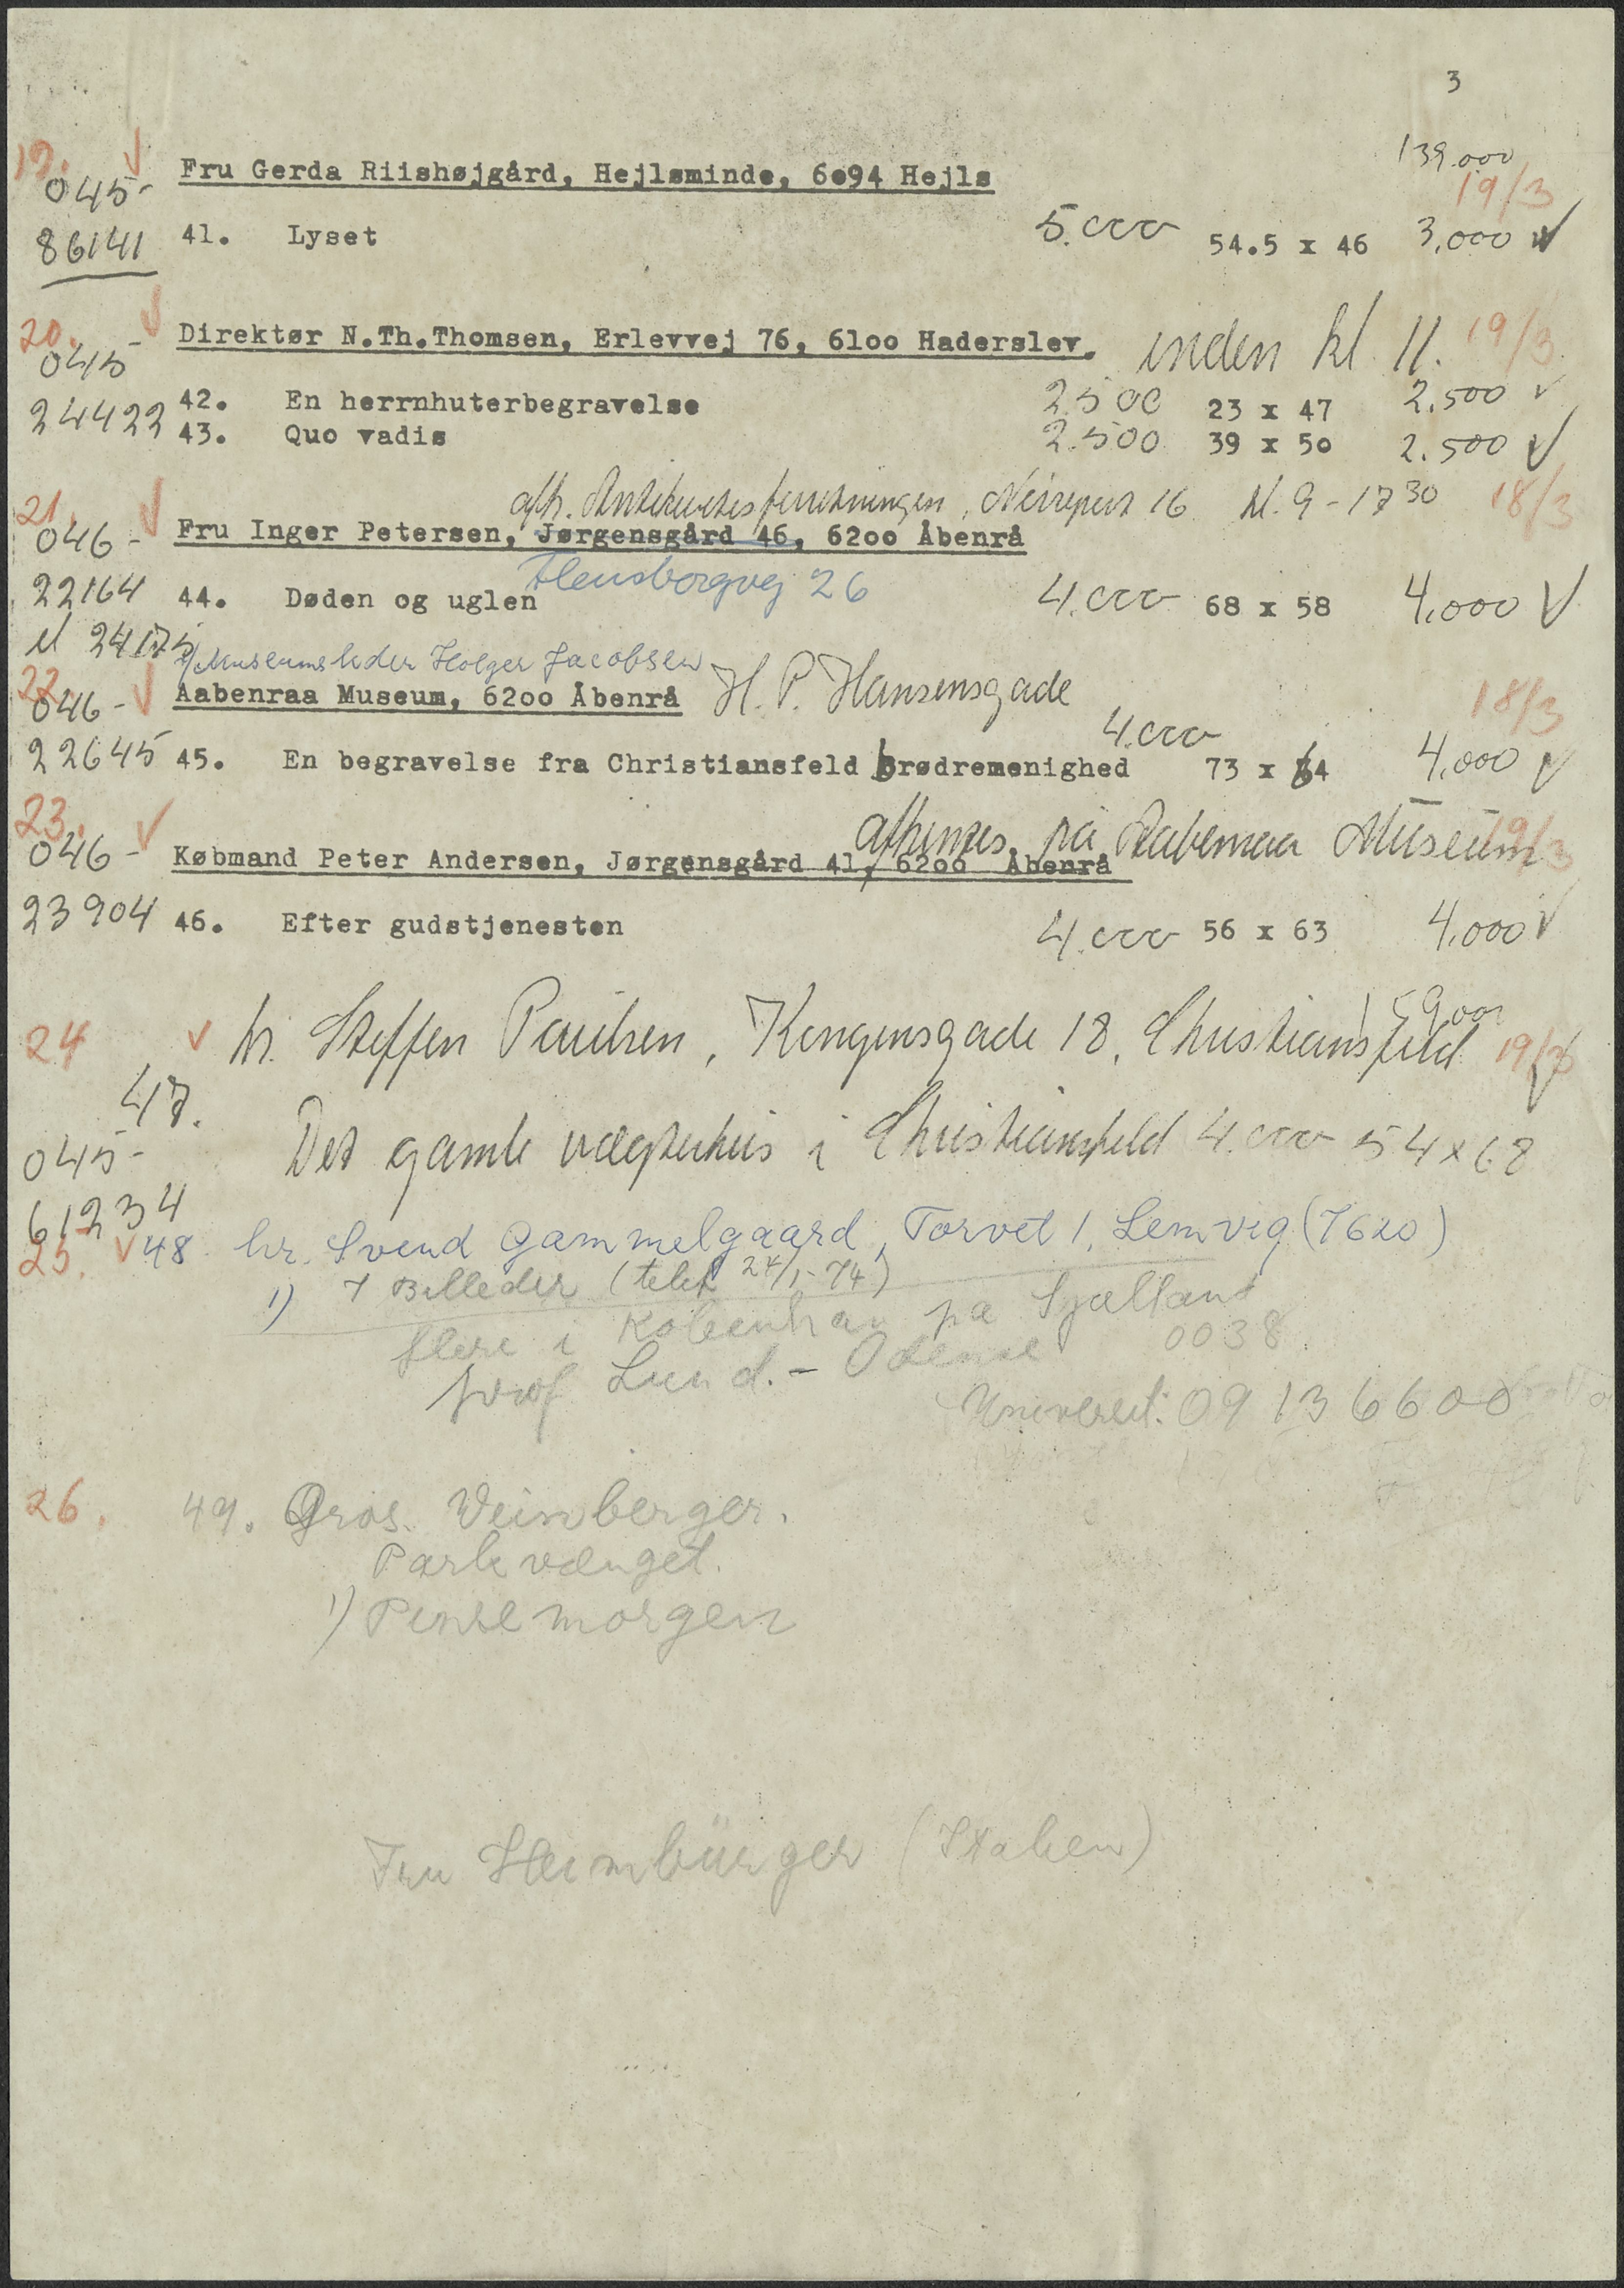 3
139.000
19. √ Fru Gerda Riishøjgård, Hejlsminde, 6o94 Hejls 19/3
045-
86141 41. Lyset 5.000 54.5 x 46 3,000 √
20. √ Direktør N.Th.Thomsen, Erlevvej 76, 61oo Haderslev. inden kl 11. 19/3
045-
24422 42. En herrnhuterbegravelse 2500 23 x 47 2.500 √
43. Quo vadis 2.500 39 x 5o 2.500 √
afh. Antikvitetsforretningen, Nørreport 16 kl. 9-17 30 18/3
21. √ Fru Inger Petersen, Jørgensgård 46, 62oo Åbenrå
046-
Flensborgvej 26
22164 44. Døden og uglen 4.000 68 x 58 4,000 √
el 24175
v/Museumsleder Holger Jacobsen
22. √ Aabenraa Museum, 62oo Åbenrå H. P. Hanssensgade 18/3
046-
4.000
22645 45. En begravelse fra Christiansfeld brødremenighed 73 x 64 4,000 √
afhentes på Aabenraa Museum
23. √ Købmand Peter Andersen, Jørgensgård 41, 62oo Åbenrå 19/3
046-
23904 46. Efter gudstjenesten 4.000 56 x 63 4,000 √
159.000
24 √ hr. Steffen Paulsen, Kongensgade 18, Christiansfeld 19/3 √
47. Det gamle vægterhus i Christiansfeld 4.000 54 x 68
045-
61234
25. √ 48 hr. Svend Gammelgaard, Torvet 1, Lemvig (7620)
1) 7 Billeder (telef 24/1-74)
flere i København på Sjælland
prof Lund. - Odense 0038.
Universit: 09 136600
26. 49. Gros. Weinberger.
Parkvænget.
1) Pinsemorgen
Fru Heimbürger (Italien)